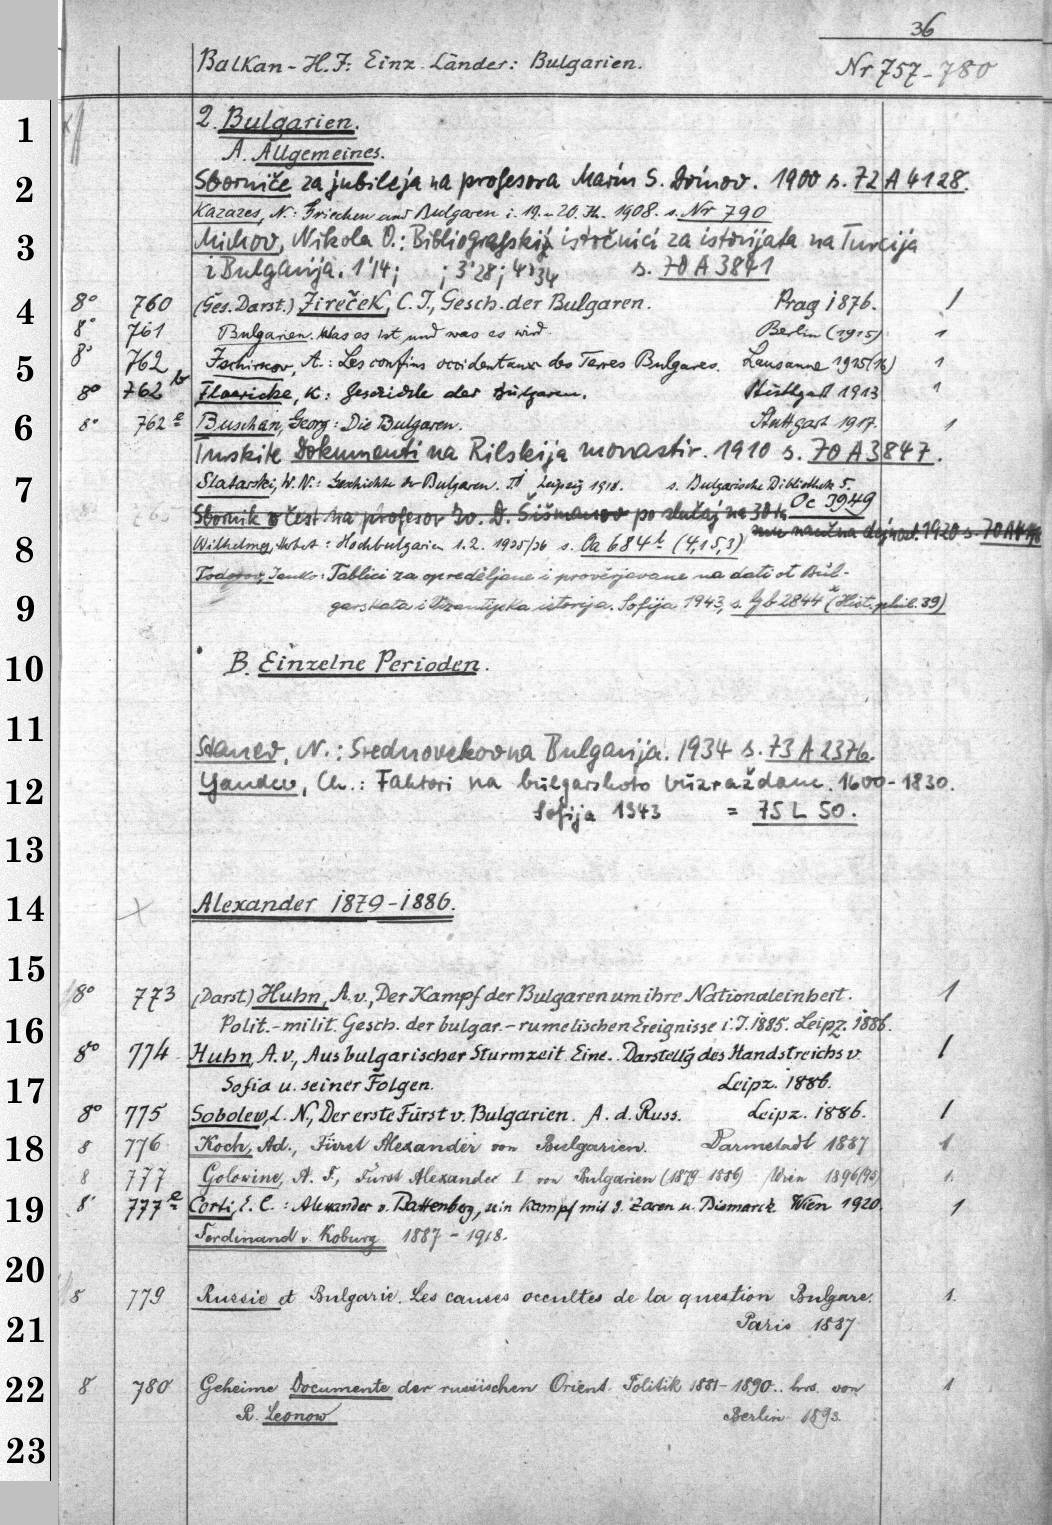 36
Balkan-H.F. Einz. Länder: Bulgarien.
Nr 757-780
1
2. Bulgarien.
A. Allgemeines.
2 Sborniče za jubileja na profesora Marin S. Drinov. 1900 s. 72 A 4128.
Kazazes, N.: Griechen und Bulgaren i. 19.-20. Jh. 1908. s. Nr 790
3 Michov, Nikola V.: Bibliografskij istočnici za istorijata na Turcija
i Bulgarija. 1'14; ; 3'28; 4'34 s. 70 A 3841
4 8° 760 (Ges. Darst.) Jireček, C. J., Gesch. der Bulgaren. Prag 1876. 1
8° 761 Bulgarien. Was es ist und was es wird. Berlin (1915) 1
5 8° 762 Ischirkov, A.: Les confins occidentaux des Terres Bulgares. Lausanne 1915(16) 1
8° 762 b Floericke, K: Geschichte der Bulgaren. Stuttgart 1913 1
6 8° 762 c Buschan, Georg: Die Bulgaren. Stuttgart 1917. 1
Turskite Dokumenti na Rilskija monastir. 1910 s. 70 A 3847.
7 Slatarski, W. N.: Geschichte der Bulgaren. T. Leipzig 1918. s. Bulgarische Bibliothek 5.
Oc 3949
Sbornik v čest na profesor Iv. D. Šišmanov po slučaj na 30
naučna dejnost. 1920 s. 70 A
8 Wilhelmy, Herbert: Hochbulgarien 1.2. 1935/36 s. Oa 684 b (4,15,3)
Todorov, Janko: Tablici za opredĕljane i provĕrjavane na dati ot Bŭl-
9 garskata i Vizantijska istorija. Sofija 1943, s. Gb 2844 x (Hist. phil. 39)
10 B. Einzelne Perioden.
11
Stanev, N.: Srednovekovna Bulgarija. 1934 s. 73 A 2376.
12 Gandev, Ch.: Faktori na bŭlgarskoto vŭzraždane. 1600-1830.
Sofija 1943 = 75 L 50.
13
14 Alexander 1879-1886.
15
8° 773 (Darst.) Huhn, A. v., Der Kampf der Bulgaren um ihre Nationaleinheit. 1
16 Polit.-milit. Gesch. der bulgar.-rumelischen Ereignisse i. J. 1885. Leipz. 1886.
8° 774 Huhn, A. v., Aus bulgarischer Sturmzeit. Eine.. Darstellg des Handstreichs v. 1
17 Sofia u. seiner Folgen. Leipz. 1886.
8° 775 Sobolew, L. N., Der erste Fürst v. Bulgarien. A. d. Russ. Leipz. 1886. 1
18 8 776 Koch, Ad., Fürst Alexander von Bulgarien. Darmstadt 1887 1
8 777 Golovine, A. F., Fürst Alexander I von Bulgarien (1879 1886) Wien 1896(95) 1.
19 8° 777 e Corti, E. C.: Alexander v. Battenberg, sein Kampf mit d. Zaren u. Bismarck. Wien 1920. 1
Ferdinand v. Koburg 1887-1918.
20
8 779 Russie et Bulgarie. Les causes occultes de la question Bulgare. 1.
21 Paris 1887
22 8 780 Geheime Documente der russischen Orient. Politik 1881-1890.. hrs. von 1
R. Leonow Berlin 1893.
23